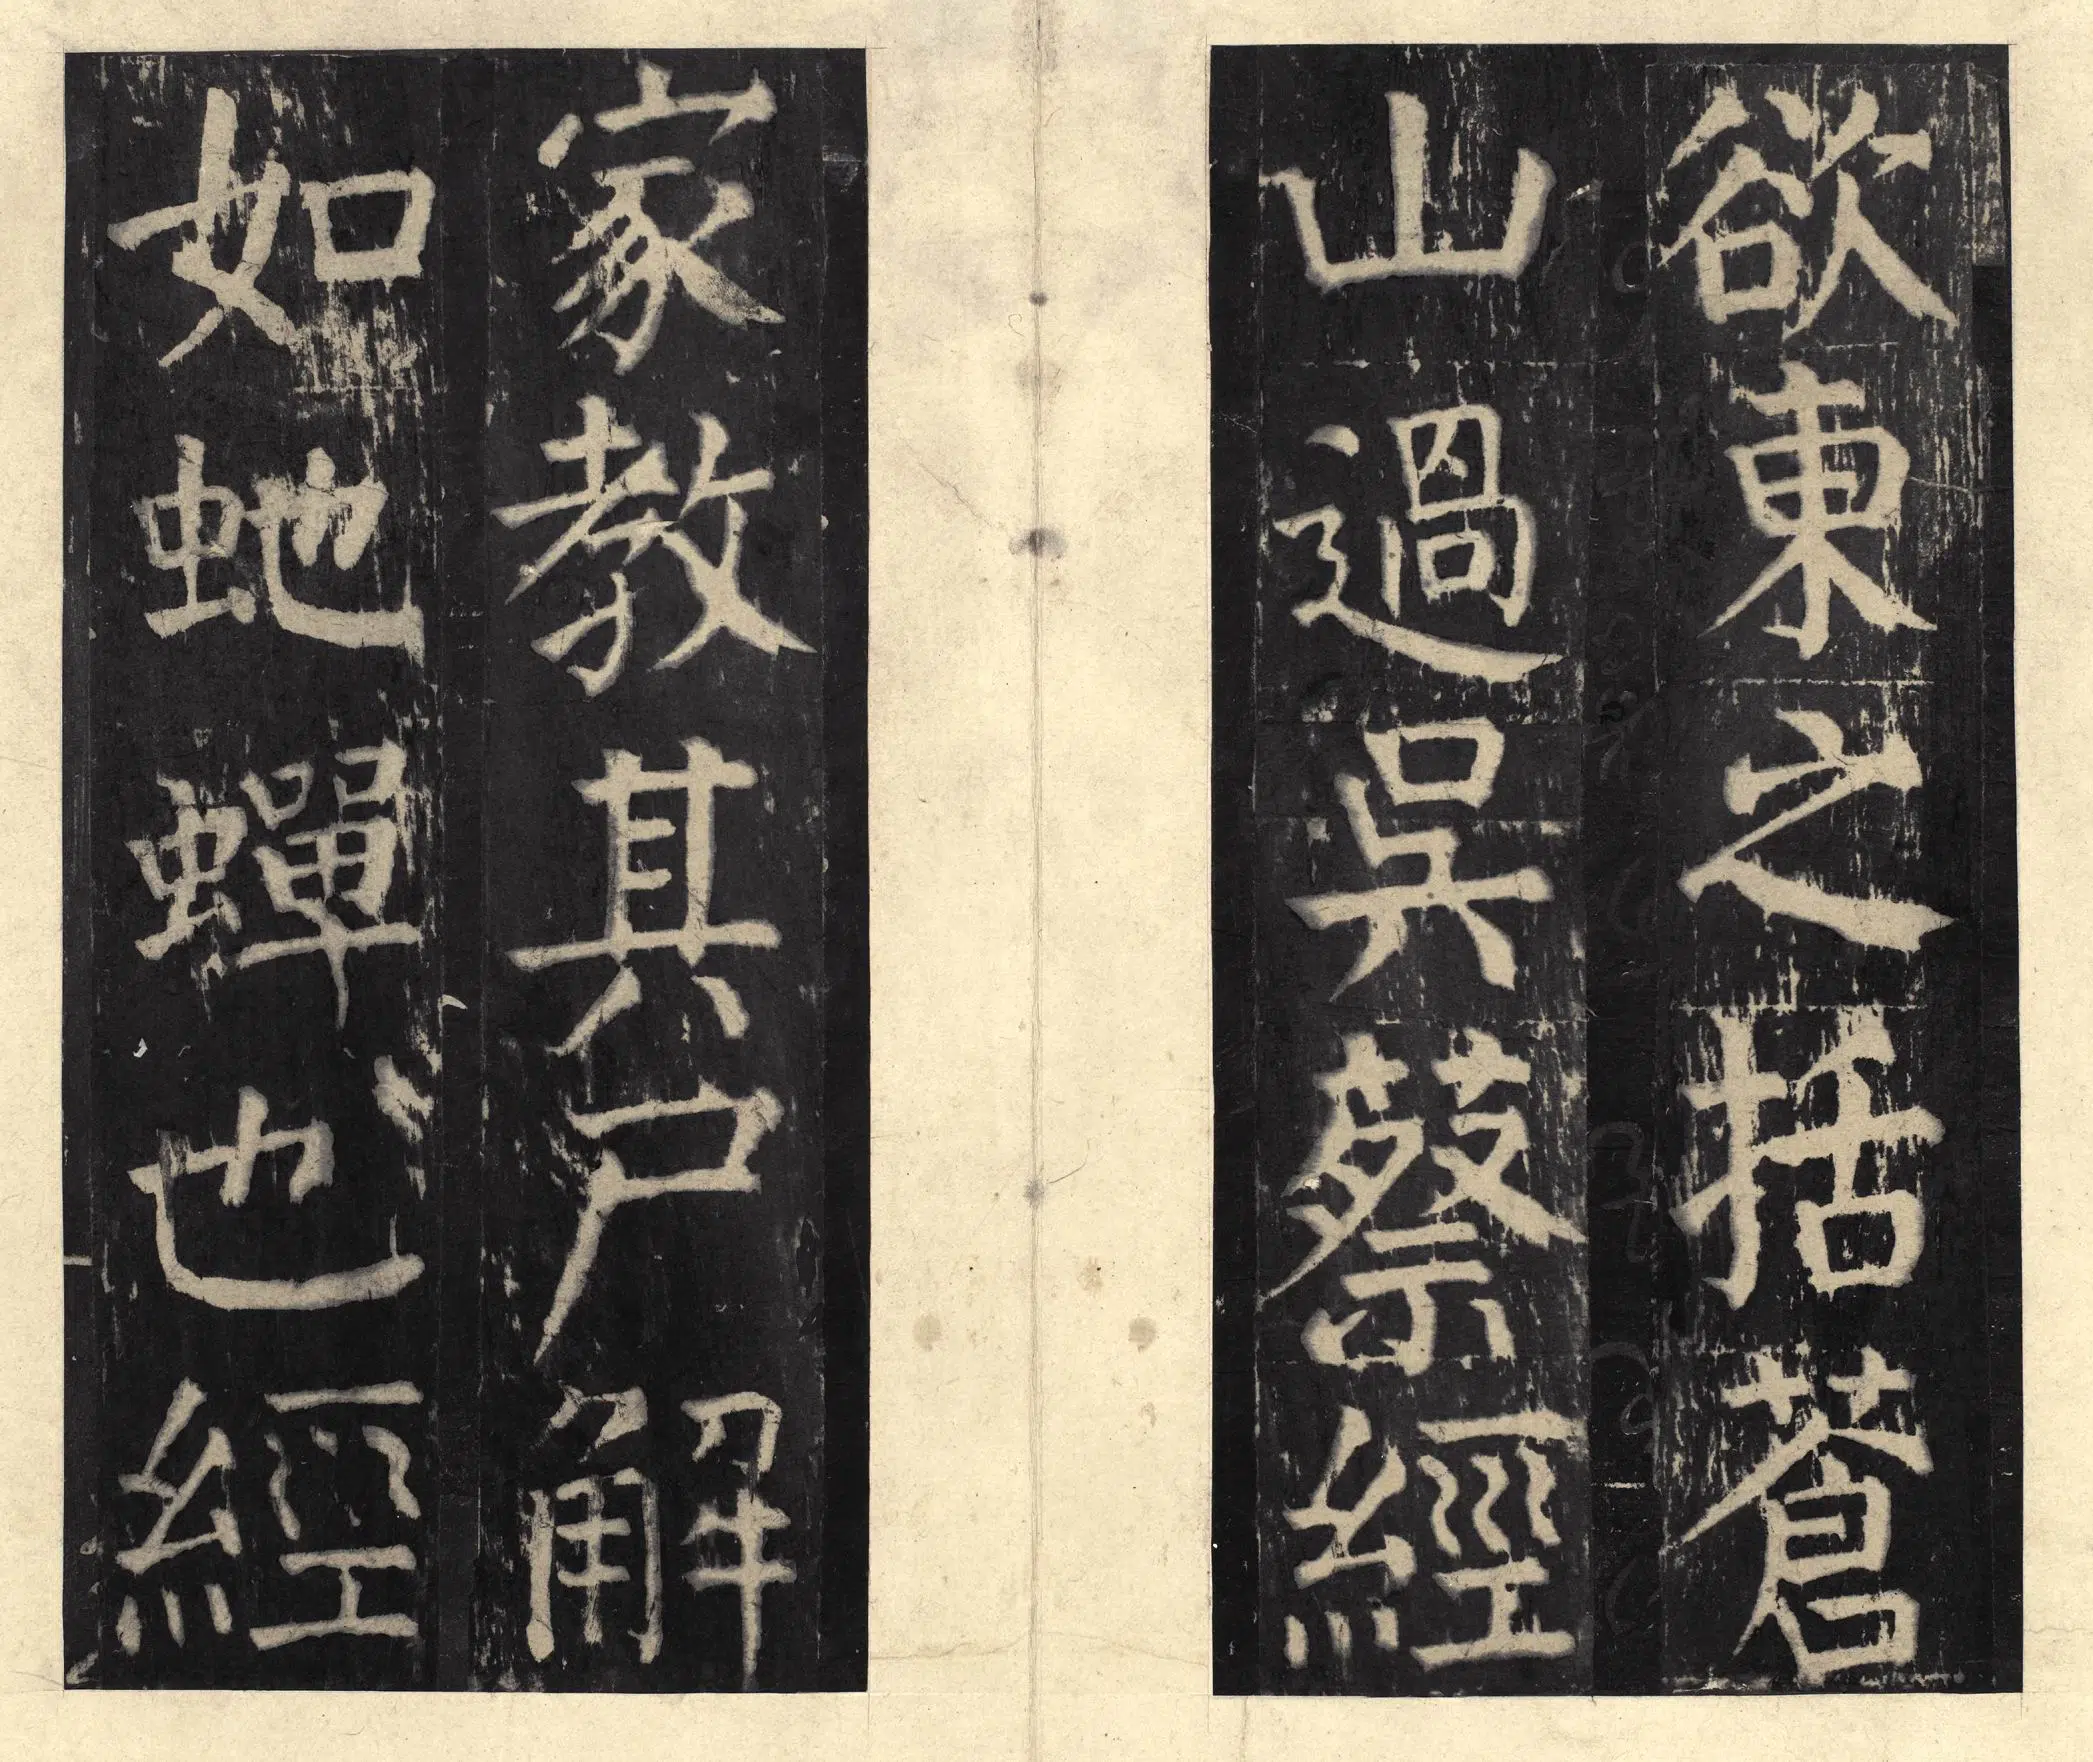 欲東之括蒼
山過吳蔡經
家教其尸解
如虵蟬也經